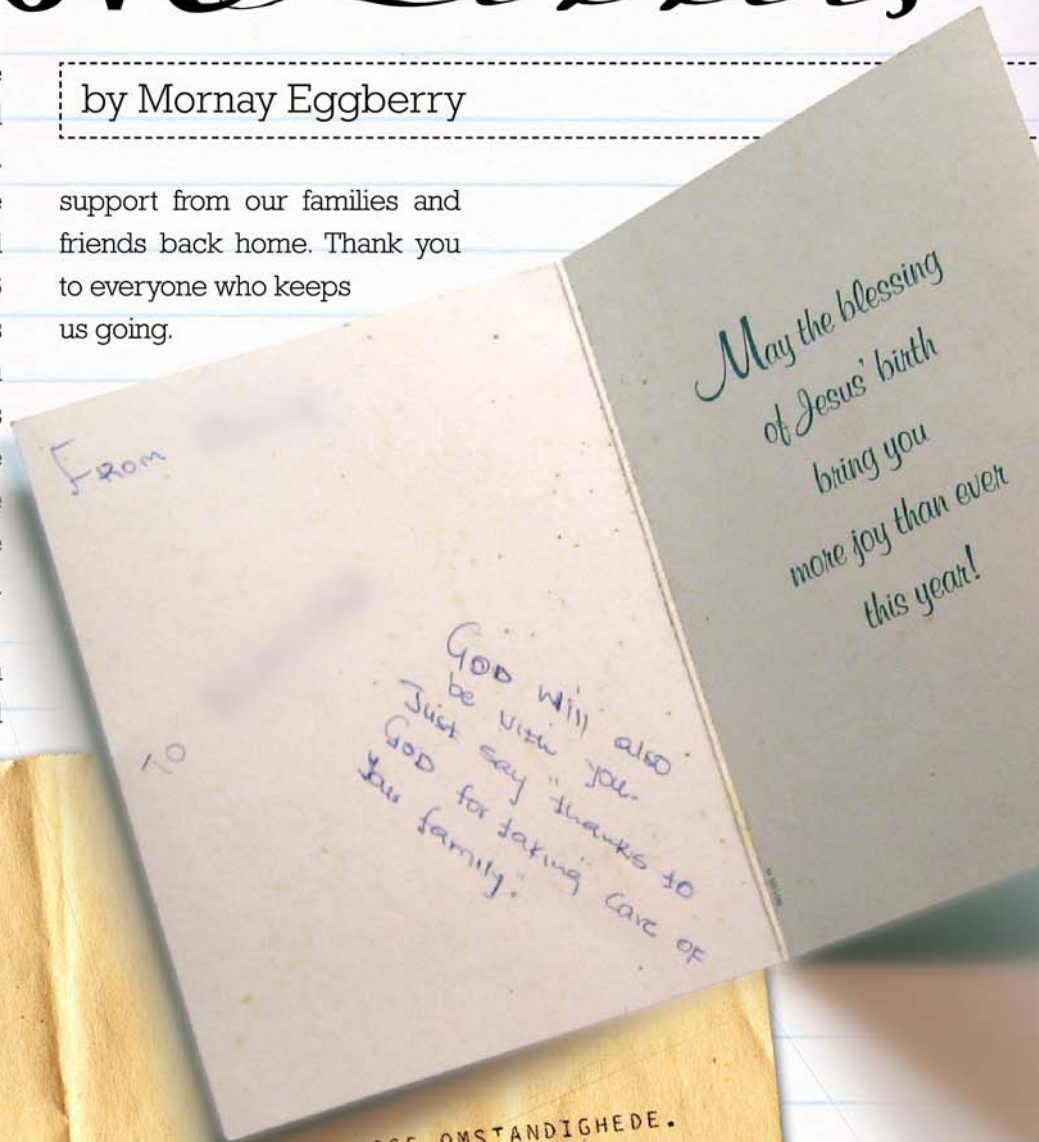 by Mornay Eggberry
support from our families and
friends back home. Thank you
to everyone who keeps
us going.
From
To
GOD will also
be with you.
Just say "thanks to
GOD for taking care of
your family."
May the blessing
of Jesus' birth
bring you
more joy than ever
this year!
OMSTANDIGHEDE.